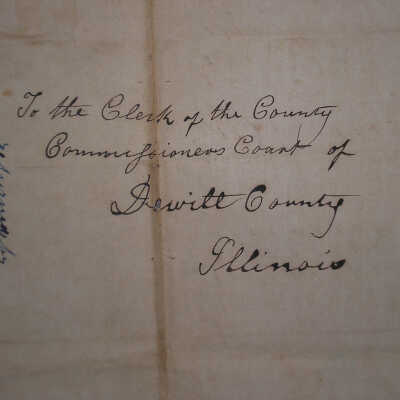 To the Clerk of the County
Commissioners Court of
Dewitt County
Illinois